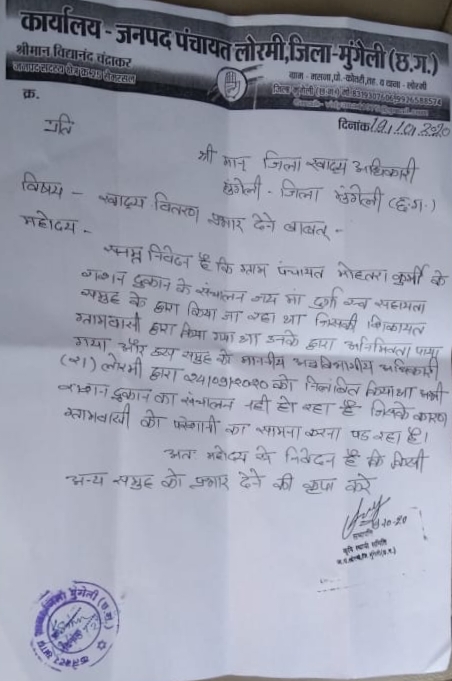 कार्यालय - जनपद पंचायत लोरमी, जिला-मुंगेली (छ.ग.)
श्रीमान विद्यानंद चंद्राकर
जनपद सदस्य क्षेत्र
क्र.
दिनांक 19/10/2020
प्रति
श्री मान् जिला खाद्य अधिकारी
मुंगेली - जिला मुंगेली (छ.ग.)
विषय - खाद्य वितरण प्रभार देने बाबत् -
महोदय -
सनम्र निवेदन है कि ग्राम पंचायत मोहतरा कुर्मी के
राशन दुकान के संचालन जय मां दुर्गा स्व सहायता
समुह के द्वारा किया जा रहा था जिसकी शिकायत
ग्रामवासी द्वारा किया गया था उनके द्वारा अनिमिता पाया
गया और उस समुह को माननीय अनुविभागीय अधिकारी
(रा) लोरमी द्वारा 24/09/2020 को निलंबित किया था अभी
राशन दुकान का संचालन नही हो रहा है जिसके कारण
ग्रामवासी को परेशानी का सामना करना पड रहा है।
अत महोदय से निवेदन है कि किसी
अन्य समुह को प्रभार देने की कृपा करे
10-20
सभापति
कृषि स्थायी समिति